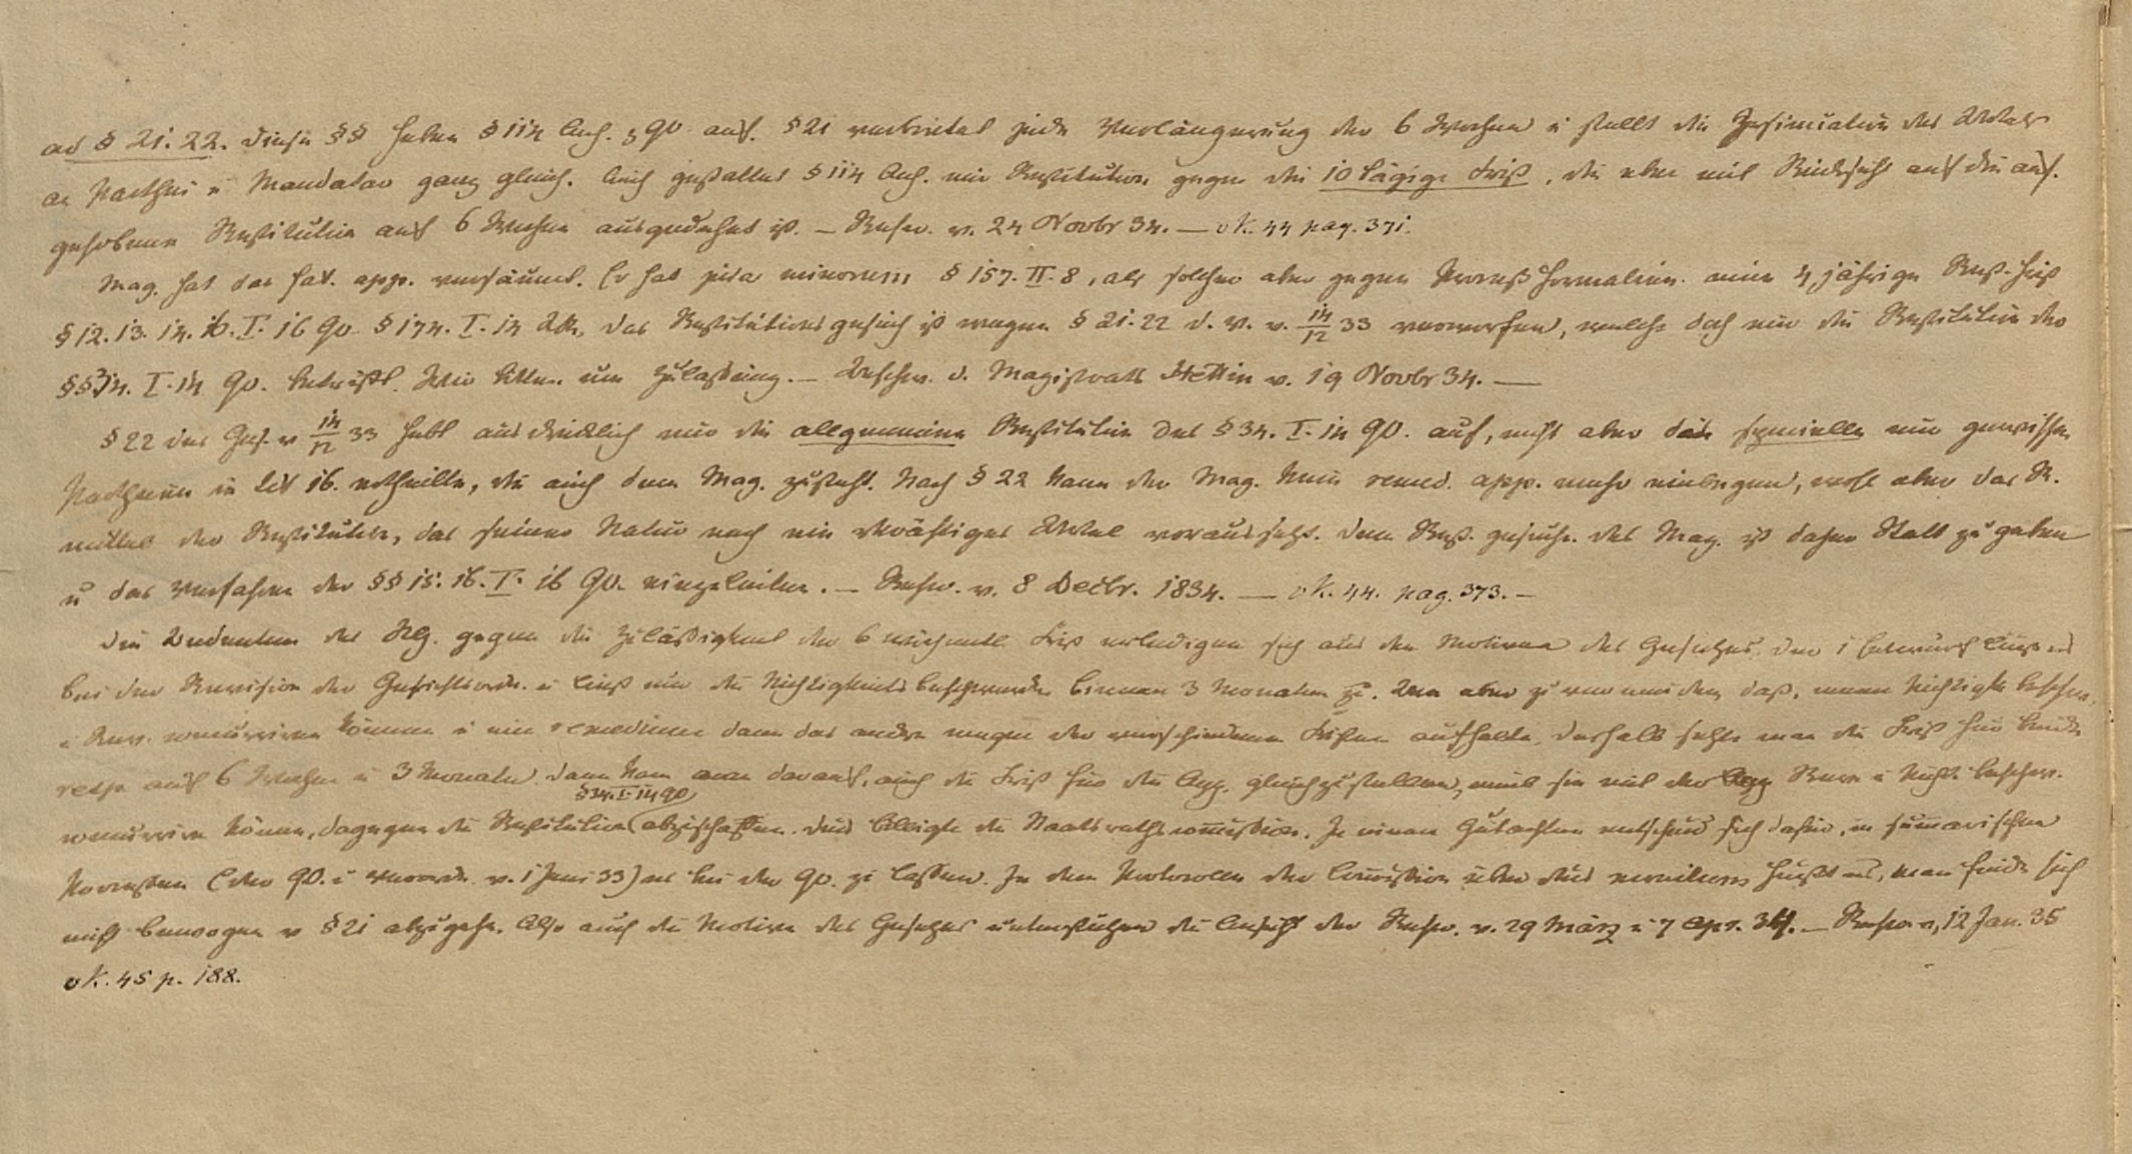 ad § 21. 22. Diese §§ heben § 114 Anh. z GO. auf. § 21 verbietet jede Verlängerung der 6 Wochen u stellt die Insinuation des Urtels
an Parthei u Mandatar ganz gleich. Auch gestattet § 114 Anh. nur Restitution gegen die 10 tägige Frist, die aber mit Rücksicht auf die auf-
gehobene Restitution auf 6 Wochen ausgedehnt ist. – Rescr. v. 24 Novbr 34. — v K. 44 pag. 371.
Mag. hat das fat. app. versäumt. Er hat jura minorum § 157. II. 8, als solcher aber gegen Prozeßformalien eine 4 jährige Rest. frist
§ 12. 13. 14. 16. I. 16 GO. § 174. I. 14 das Restitutionsgesuch ist wegen § 21. 22 d. V. v. 14/12 33 verworfen, welche doch nur die Restitution des
§§ 34. I. 14 GO. betrifft. Wir bitten um Zulassung. – Beschw. d. Magistrats Stettin v. 19 Novbr 34. —
§ 22 des Ges. v 14/12 33 hebt ausdrücklich nur die allgemeine Restitution des § 34. I. 14 GO. auf, nicht aber die specielle nur gewissen
Partheien in tit 16. ertheilte, die auch dem Mag. zusteht. Nach § 22 kann der Mag. kein remed. app. mehr einlegen, wohl aber das R.
mittel der Restitution, das seiner Natur nach ein rkräftiges Urtel voraussetzt. Dem Rest. gesuche des Mag. ist daher Statt zu geben
u das Verfahren der §§ 15. 16. I. 16 GO. einzuleiten. – Rescr. v. 8 Decbr. 1834. — v K. 44. pag. 373. –
Die Bedenken des gegen die Zuläßigkeit der 6 wöchentl. Frist erledigen sich aus den Motiven des Gesetzes. Der 1 Entwurf ließ es
bei der Revision der Gerichtsordn. u ließ nur die Nichtigkeitsbeschwerde binnen 3 Monaten zu. Um aber zu vermeiden, daß, wenn Nichtigk. beschw.
u Rev. concurriren können u ein remedium dann das andre wegen der verschiedenen Fristen aufhalte, deshalb setzte man die Frist für beide
resp. auf 6 Wochen u 3 Monate. Dann kam man darauf, auch die Frist für die App. gleichzustellen, weil sie mit der Rev. u Nicht. beschw.
§ 34. I. 14 GO
concurriren könne, dagegen die Restitution abzuschaffen. Dies billigte die Staatsrathscomission. In einem Gutachten entschied sich dahin, in sumarischen
Prozeßen (der GO. u Verordn. v. 1 Juni 33) es bei der GO. zu lassen. In dem Protocolle der Comission über dies heißt es, man finde sich
nicht bewogen v § 21 abzugehn. Also auch die Motive des Gesetzes unterstützen die Ansicht der Rescr. v. 29 März u 7 Apr. 34. – Rescr. v. 12 Jan. 35
v K. 45 p. 188.